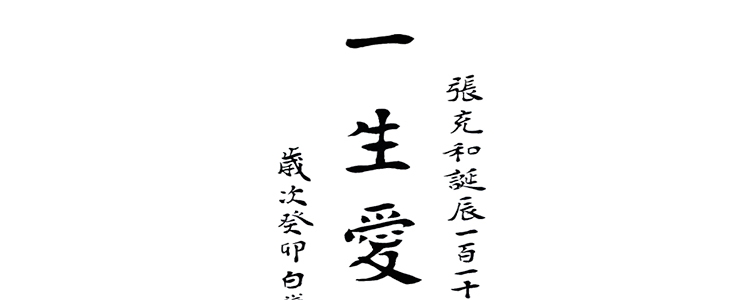 張充和誕辰一百一十
一生愛
歲次癸卯白